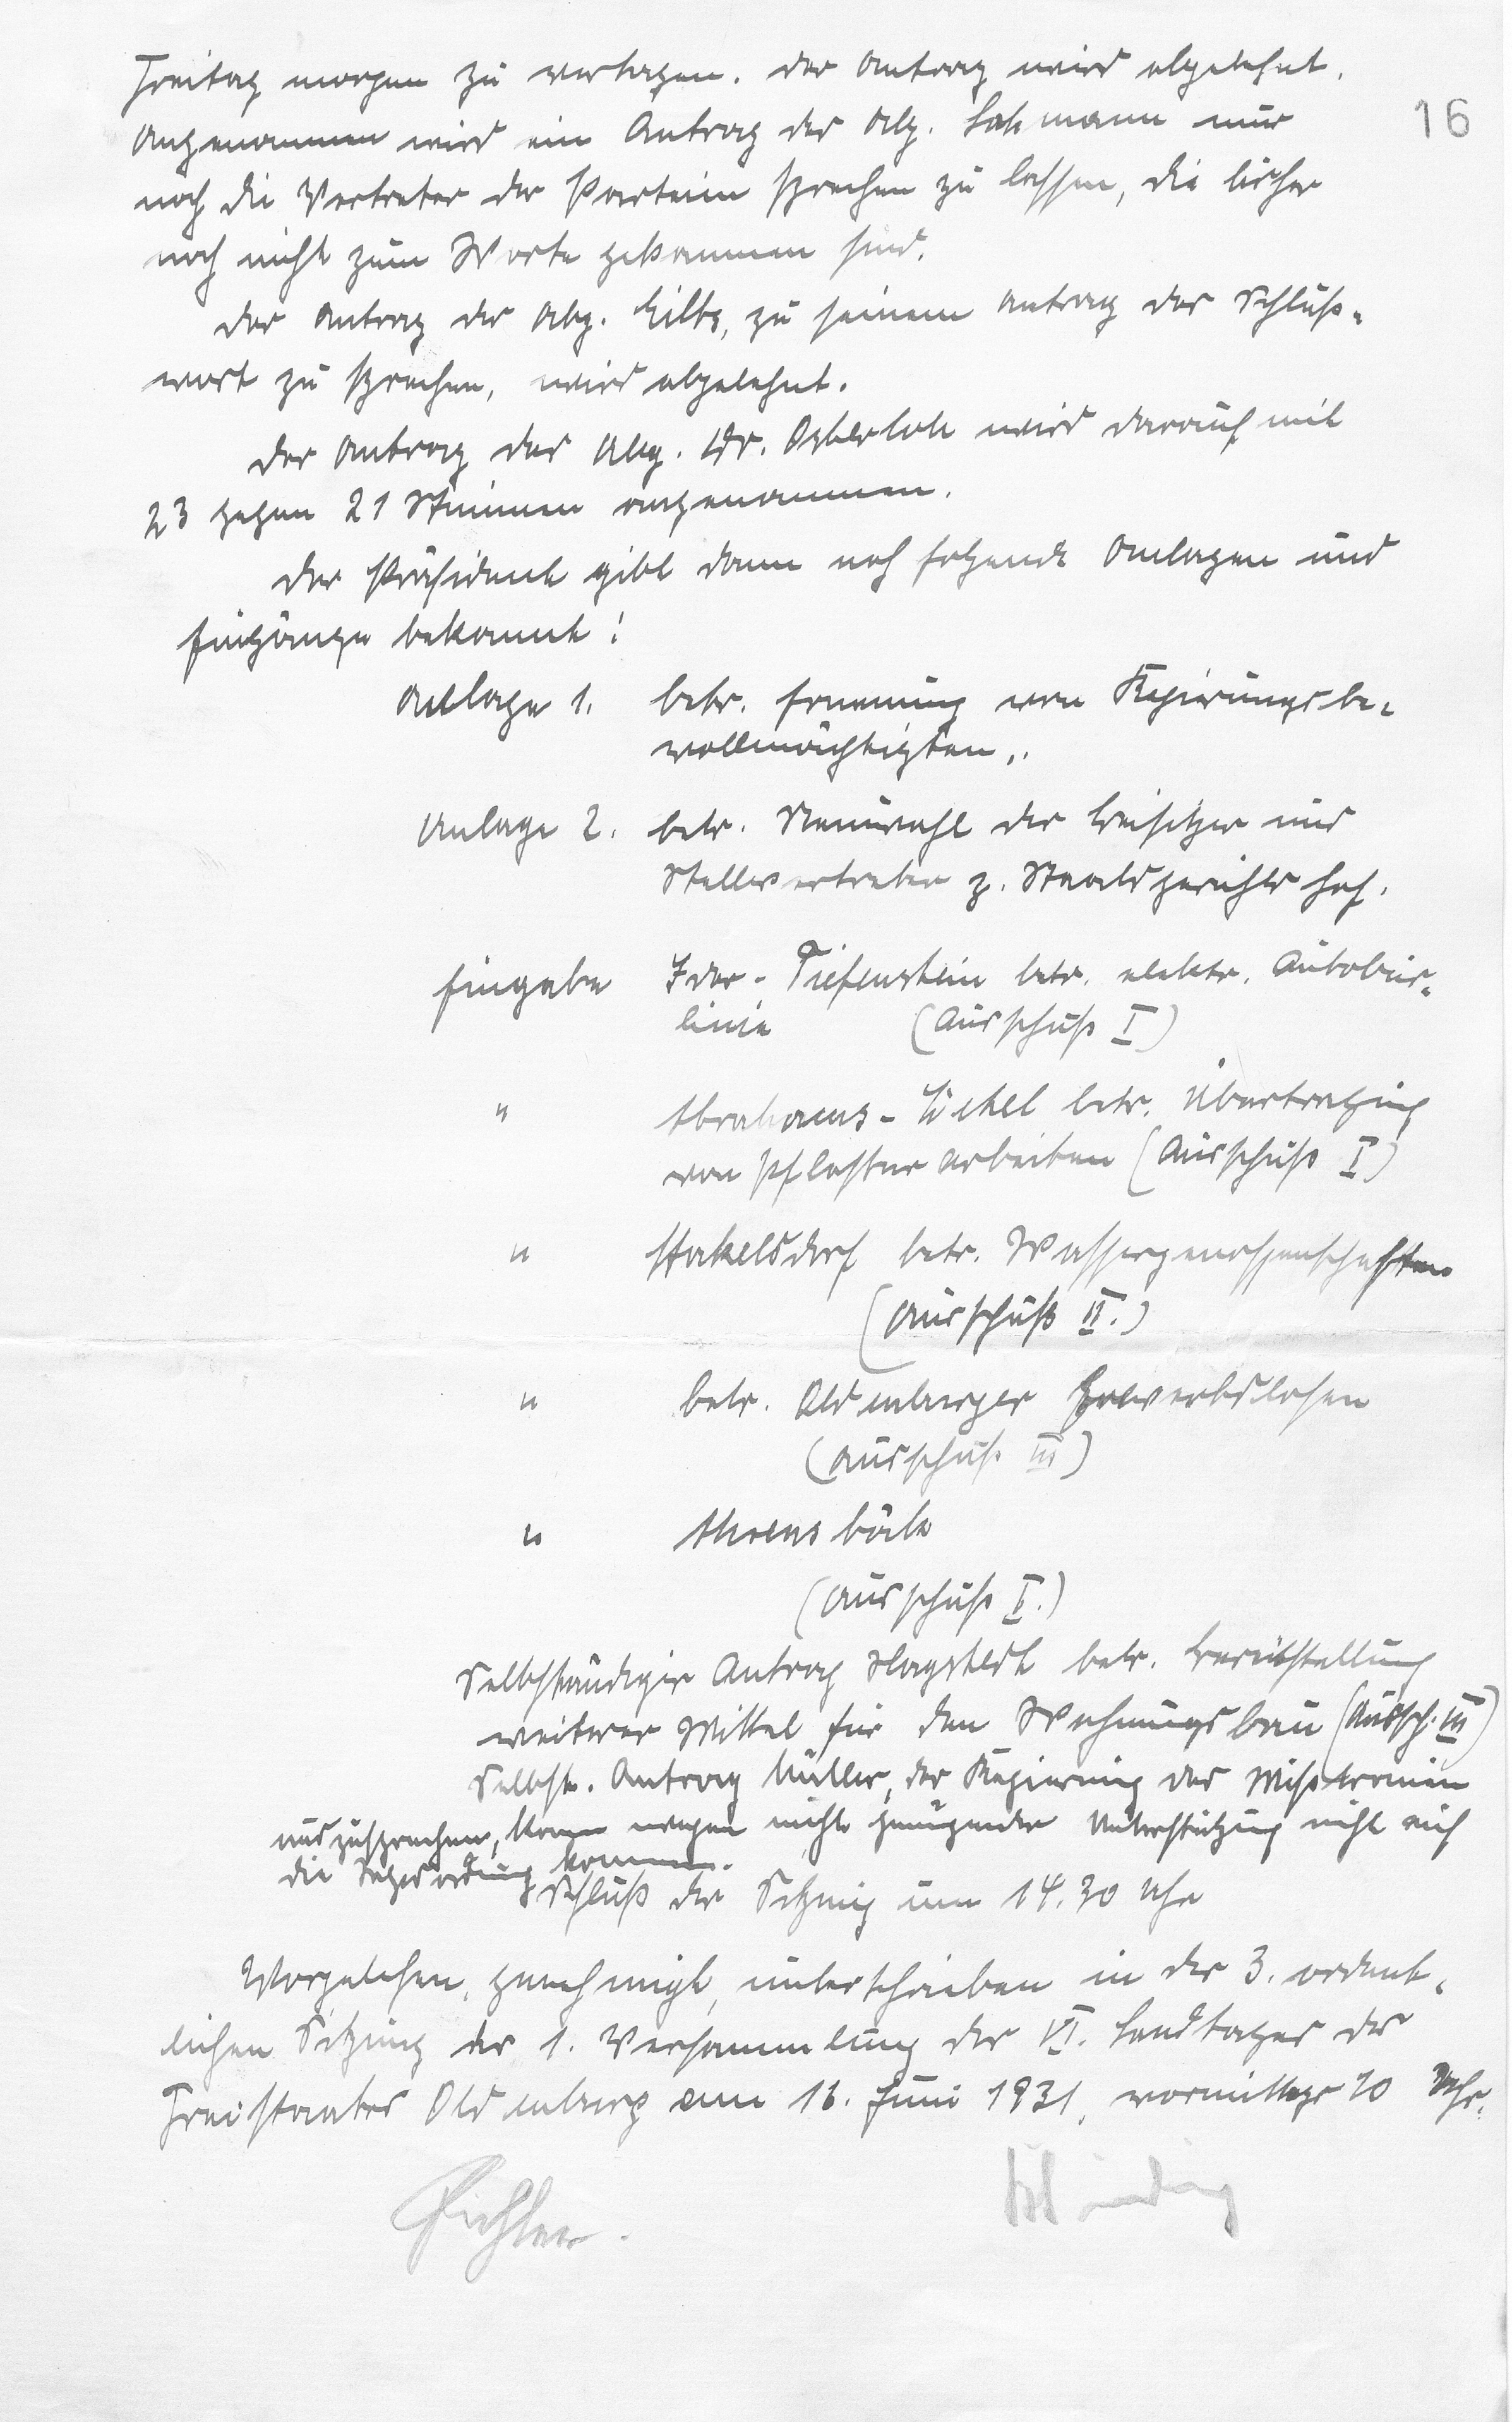 Freitag morgen zu vertagen. Der Antrag wird abgelehnt.
16
Angenommen wird ein Antrag des Abg. Lahmann nur
noch die Vertreter der Parteien sprechen zu lassen, die bisher
noch nicht zum Worte gekommen sind.
Der Antrag des Abg. Hilbg, zu seinem Antrag das Schluß-
wort zu sprechen, wird abgelehnt.
Der Antrag des Abg. Dr. Osterloh wird darauf mit
23 gegen 21 Stimmen angenommen.
Der Präsident gibt dann noch folgende Anlagen und
Eingänge bekannt:
Anlage 1. betr. Ernennung von Regierungsbe-
vollmächtigten.
Anlage 2. betr. Neuwahl der Beisitzer und
Stellvertreter z. Staatsgerichtshof.
Eingabe Idar-Tiefenstein betr. elektr. Autobus-
linie (Ausschuß I)
" Abrahams - betr. Übertragung
von Pflasterarbeiten (Ausschuß I)
" Stockelsdorf betr. Wassergenossenschaften
(Ausschuß II.)
" betr. Oldenburger Erwerbslosen
(Ausschuß III)
" Ahrensböck
(Ausschuß I.)
Selbständiger Antrag Hagstedt betr. Bereitstellung
weiterer Mittel für den Wohnungsbau (Aussch. III)
Selbst. Antrag Müller, der Regierung das Mißtrauen
auszusprechen, kann wegen nicht genügender Unterstützung nicht auf
die Tagesordnung kommen.
Schluß der Sitzung um 14.30 Uhr
Vorgelesen, genehmigt, unterschrieben in der 3. ordent-
lichen Sitzung der 1. Versammlung des VI. Landtages des
Freistaates Oldenburg am 16. Juni 1931, vormittags 10 Uhr.